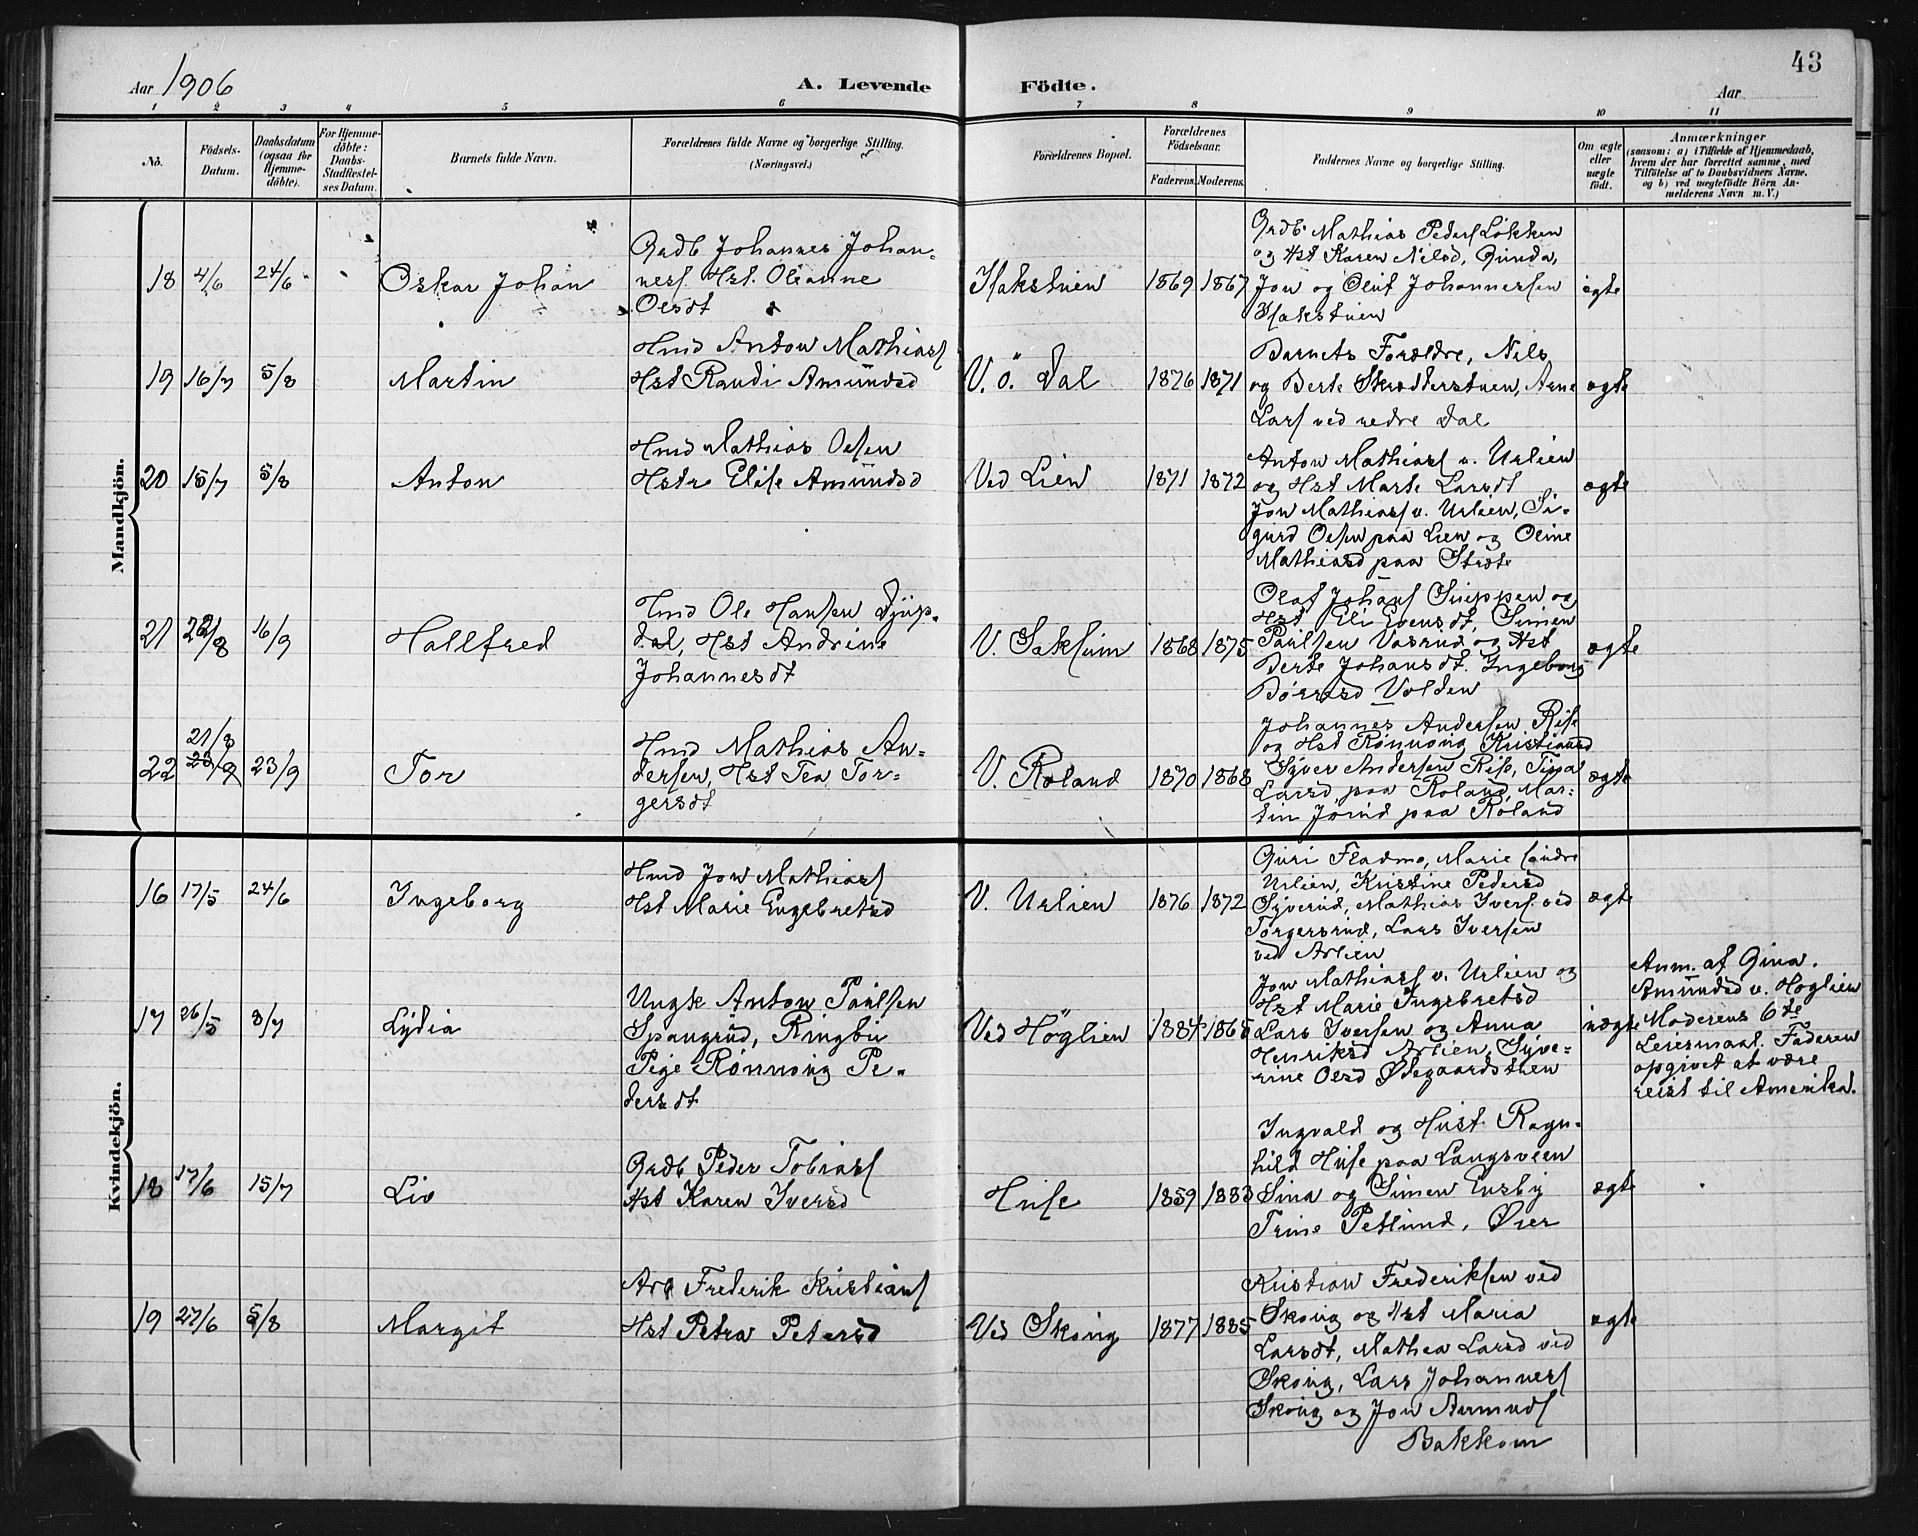 Aar 1906
A. Levende Födte.
43
Aar
1 2 3 4 5 6 7 8 9 10 11
No.
Födsels-Datum.
Daabsdatum (ogsaa for Hjemme-döbte).
For Hjemme-döbte: Daabs-Stadfæstel-ses Datum.
Barnets fulde Navn.
Forældrenes fulde Navne og borgerlige Stilling.
(Næringsvei.)
Forældrenes Bopæl.
Forældrenes Födselsaar.
Faderens. Moderens.
Faddernes Navne og borgerlige Stilling.
Om ægte eller uægte födt.
Anmærkninger
(saasom: a) i Tilfælde af Hjemmedaab,
hvem der har forrettet samme, med
Tilföielse af to Daabsvidners Navne.
og b) ved uægtefödte Börn An-
melderens Navn m. V.)
Mandkjön.
18 4/6 24/6 Oskar Johan
Grdb Johannes Johan-
nesf Hst. Oleanne
Olsdt
Hakstuen 1869 1867
Grdb Mathias Pedersf Løkken
og Hst Karen Nilsd, Gunda,
Jon og Oluf Johannessen
Hakstuen
ægte
19 16/7 5/8 Martin
Hmd Anton Mathiasf
Hst Randi Amundsd
V. ö. Dal 1876 1871
Barnets Forældre, Nils
og Berte Skrædderstuen, Arne
Larsf ved nedre Dal
ægte
20 15/7 5/8 Anton
Hmd Mathias Olsen
Hstr Elise Amundsd
Ved Lien 1871 1872
Anton Mathiasf v. Urlien
og Hst Marte Larsdt
Jon Mathiasf v. Urlien, Si-
gurd Olsen paa Lien og Oline
Mathiasd paa Stræte
ægte
21 22/8 16/9 Hallfred
Hmd Ole Hansen Djup-
dal, Hst Andrine
Johannesdt
V. Saksum 1868 1875
Olaf Johansf Snippen og
Hst Eli Evensdt, Simen
Paulsen Vasrud og Hst
Berte Johansdt. Ingeborg
Börresd Volden
ægte
22 21/8 23/9 Tor
Hmd Mathias An-
dersen, Hst Tea Tor-
gersdt
V. Roland 1870 1868
Johannes Andersen Rise
og Hst Rønnoug Kristiansd
Syver Andersen Rise, Tina
Larsd paa Roland, Mar-
tin Jörud paa Roland
ægte
Kvindekjön.
16 17/5 24/6 Ingeborg
Hmd Jon Mathiasf
Hst Marie Engebretsd
V. Urlien 1876 1872
Guri Fladmo, Marie søndre
Urlien, Kristine Pedersd
Syverud, Mathias Iversf. ved
Torgersrud, Lars Iversen
ved Arlien
ægte
17 26/5 8/7 Lydia
Ungk Anton Paulsen
Spangrud, Ringbu
Pige Rønnoug Pe-
dersdt
Ved Höglien 1884 1865
Jon Mathiasf v. Urlien og
Hst Marie Ingebretsd
Lars Iversen og Anna
Henriksd Arlien, Syve-
rine Olsd Ødegaardsthen
uægte
Anm. af Gina
Amundsd v. Höglien
Moderens 6te
Leiermaal. Faderen
opgivet at være
reist til Amerika.
18 17/6 15/7 Liv
Grdb Peder Tobiasf
Hst Karen Iversd
Huse 1859 1883
Ingvald og Hust. Ragn-
hild Huse paa Langsveen
Sina og Simen Ensby
Trine Petlund, Øier
ægte
19 27/6 5/8 Margit
Arb Frederik Kristiansf
Hst Petra Petersd
Ved Skoug 1877 1885
Kristian Frederiksen ved
Skoug og Hst Maria
Larsdt, Mathea Larsd ved
Skoug, Lars Johannesf
Skoug og Jon Amundsf
Bakkom
ægte